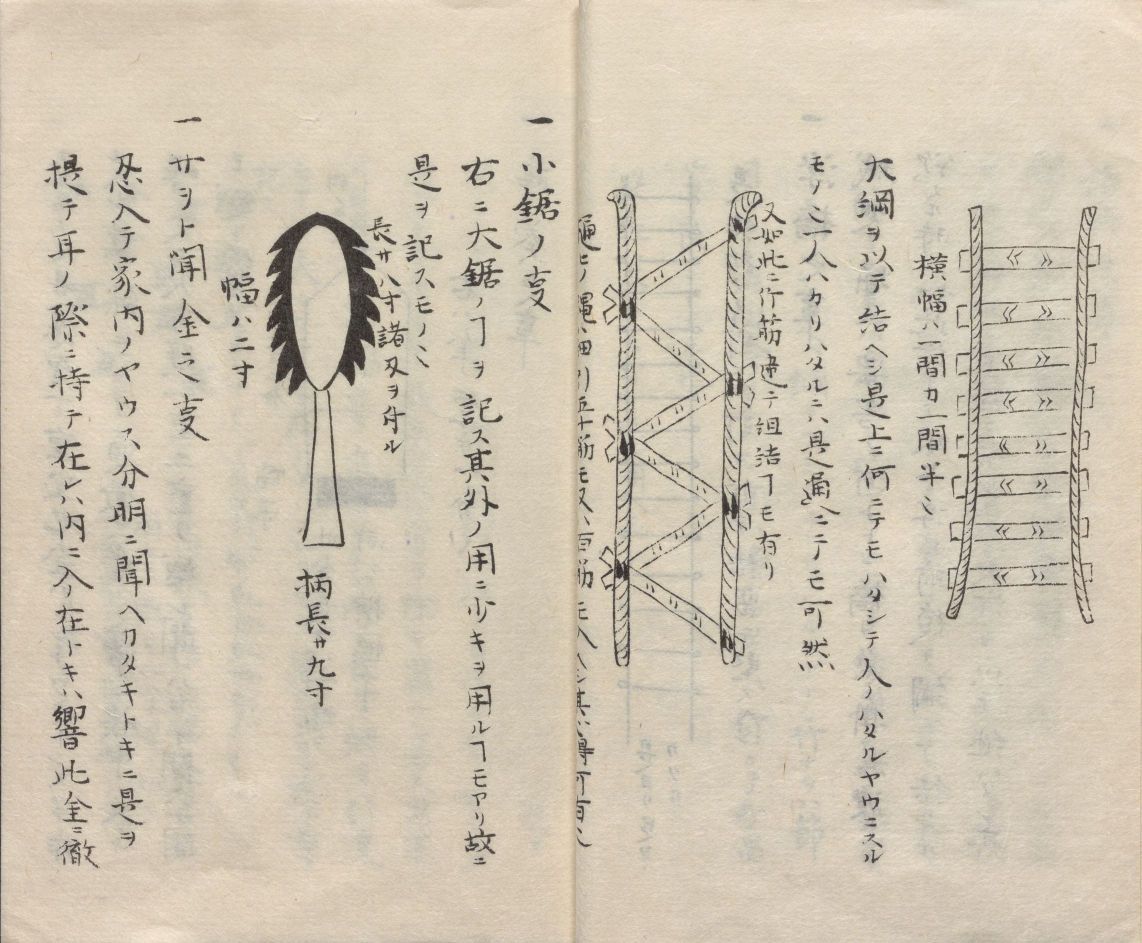 横幅ハ一間カ一間半也
大綱ヲ以テ結ヘシ是上ニ何ニテモハタシテ人ノハタルヤウニスル
モノ也一人ハカリハタルニハ具通ニテモ可然
又如此ニ行筋違テ組結ヿモ有リ
縄ハ細引五十筋モ又ハ百筋モ入ヘシ其心得可有之
一小鋸ノ支
右ニ大鋸ノヿヲ記ス其外ノ用ニ少キヲ用ルヿモアリ故ニ
是ヲ記スモノ也
長サ八寸諸刃ヲ付ル
幅ハ二寸
柄長サ九寸
一サヲト聞金之支
忍入テ家内ノヤウス分明ニ聞ヘカタキトキニ是ヲ
提テ耳ノ際ニ持テ在レハ内ニ人在トキハ響此金ニ徹